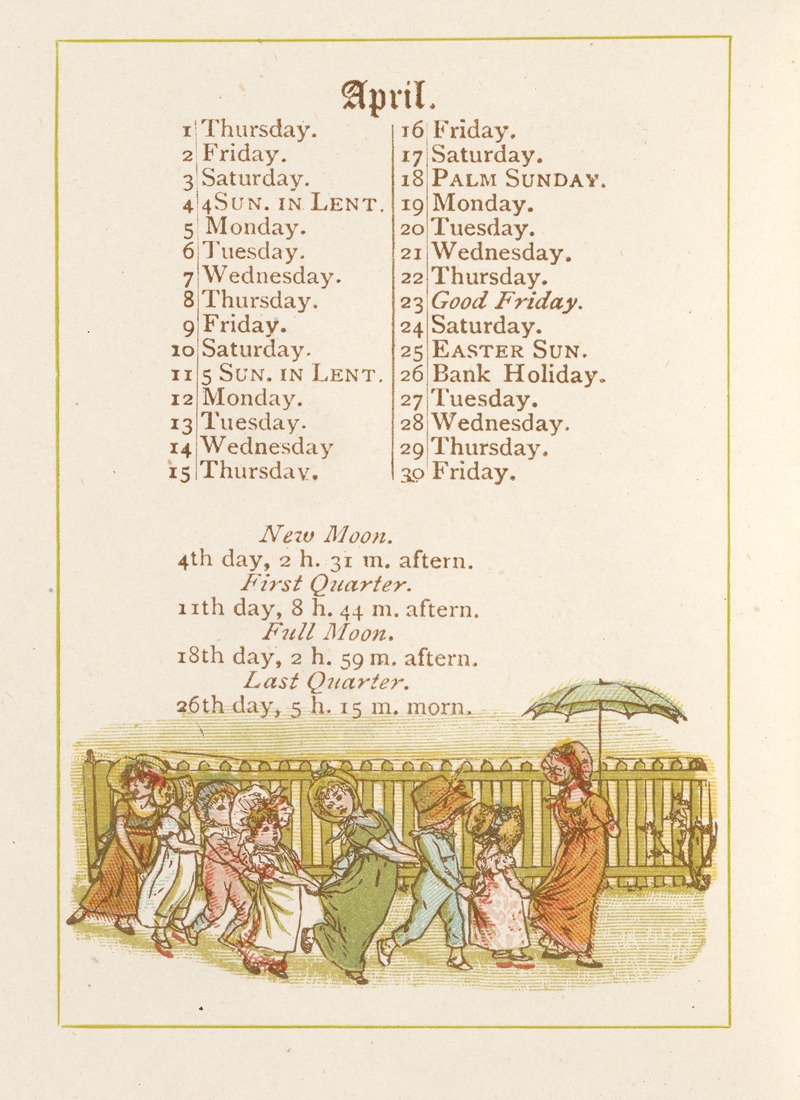 April.
1 Thursday.
2 Friday.
3 Saturday.
4 4 SUN. IN LENT.
5 Monday.
6 Tuesday.
7 Wednesday.
8 Thursday.
9 Friday.
10 Saturday.
11 5 SUN. IN LENT.
12 Monday.
13 Tuesday.
14 Wednesday
15 Thursday.
16 Friday.
17 Saturday.
18 PALM SUNDAY.
19 Monday.
20 Tuesday.
21 Wednesday.
22 Thursday.
23 Good Friday.
24 Saturday.
25 EASTER SUN.
26 Bank Holiday.
27 Tuesday.
28 Wednesday.
29 Thursday.
30 Friday.
New Moon.
4th day, 2 h. 31 m. aftern.
First Quarter.
11th day, 8 h. 44 m. aftern.
Full Moon.
18th day, 2 h. 59 m. aftern.
Last Quarter.
26th day, 5 h. 15 m. morn.